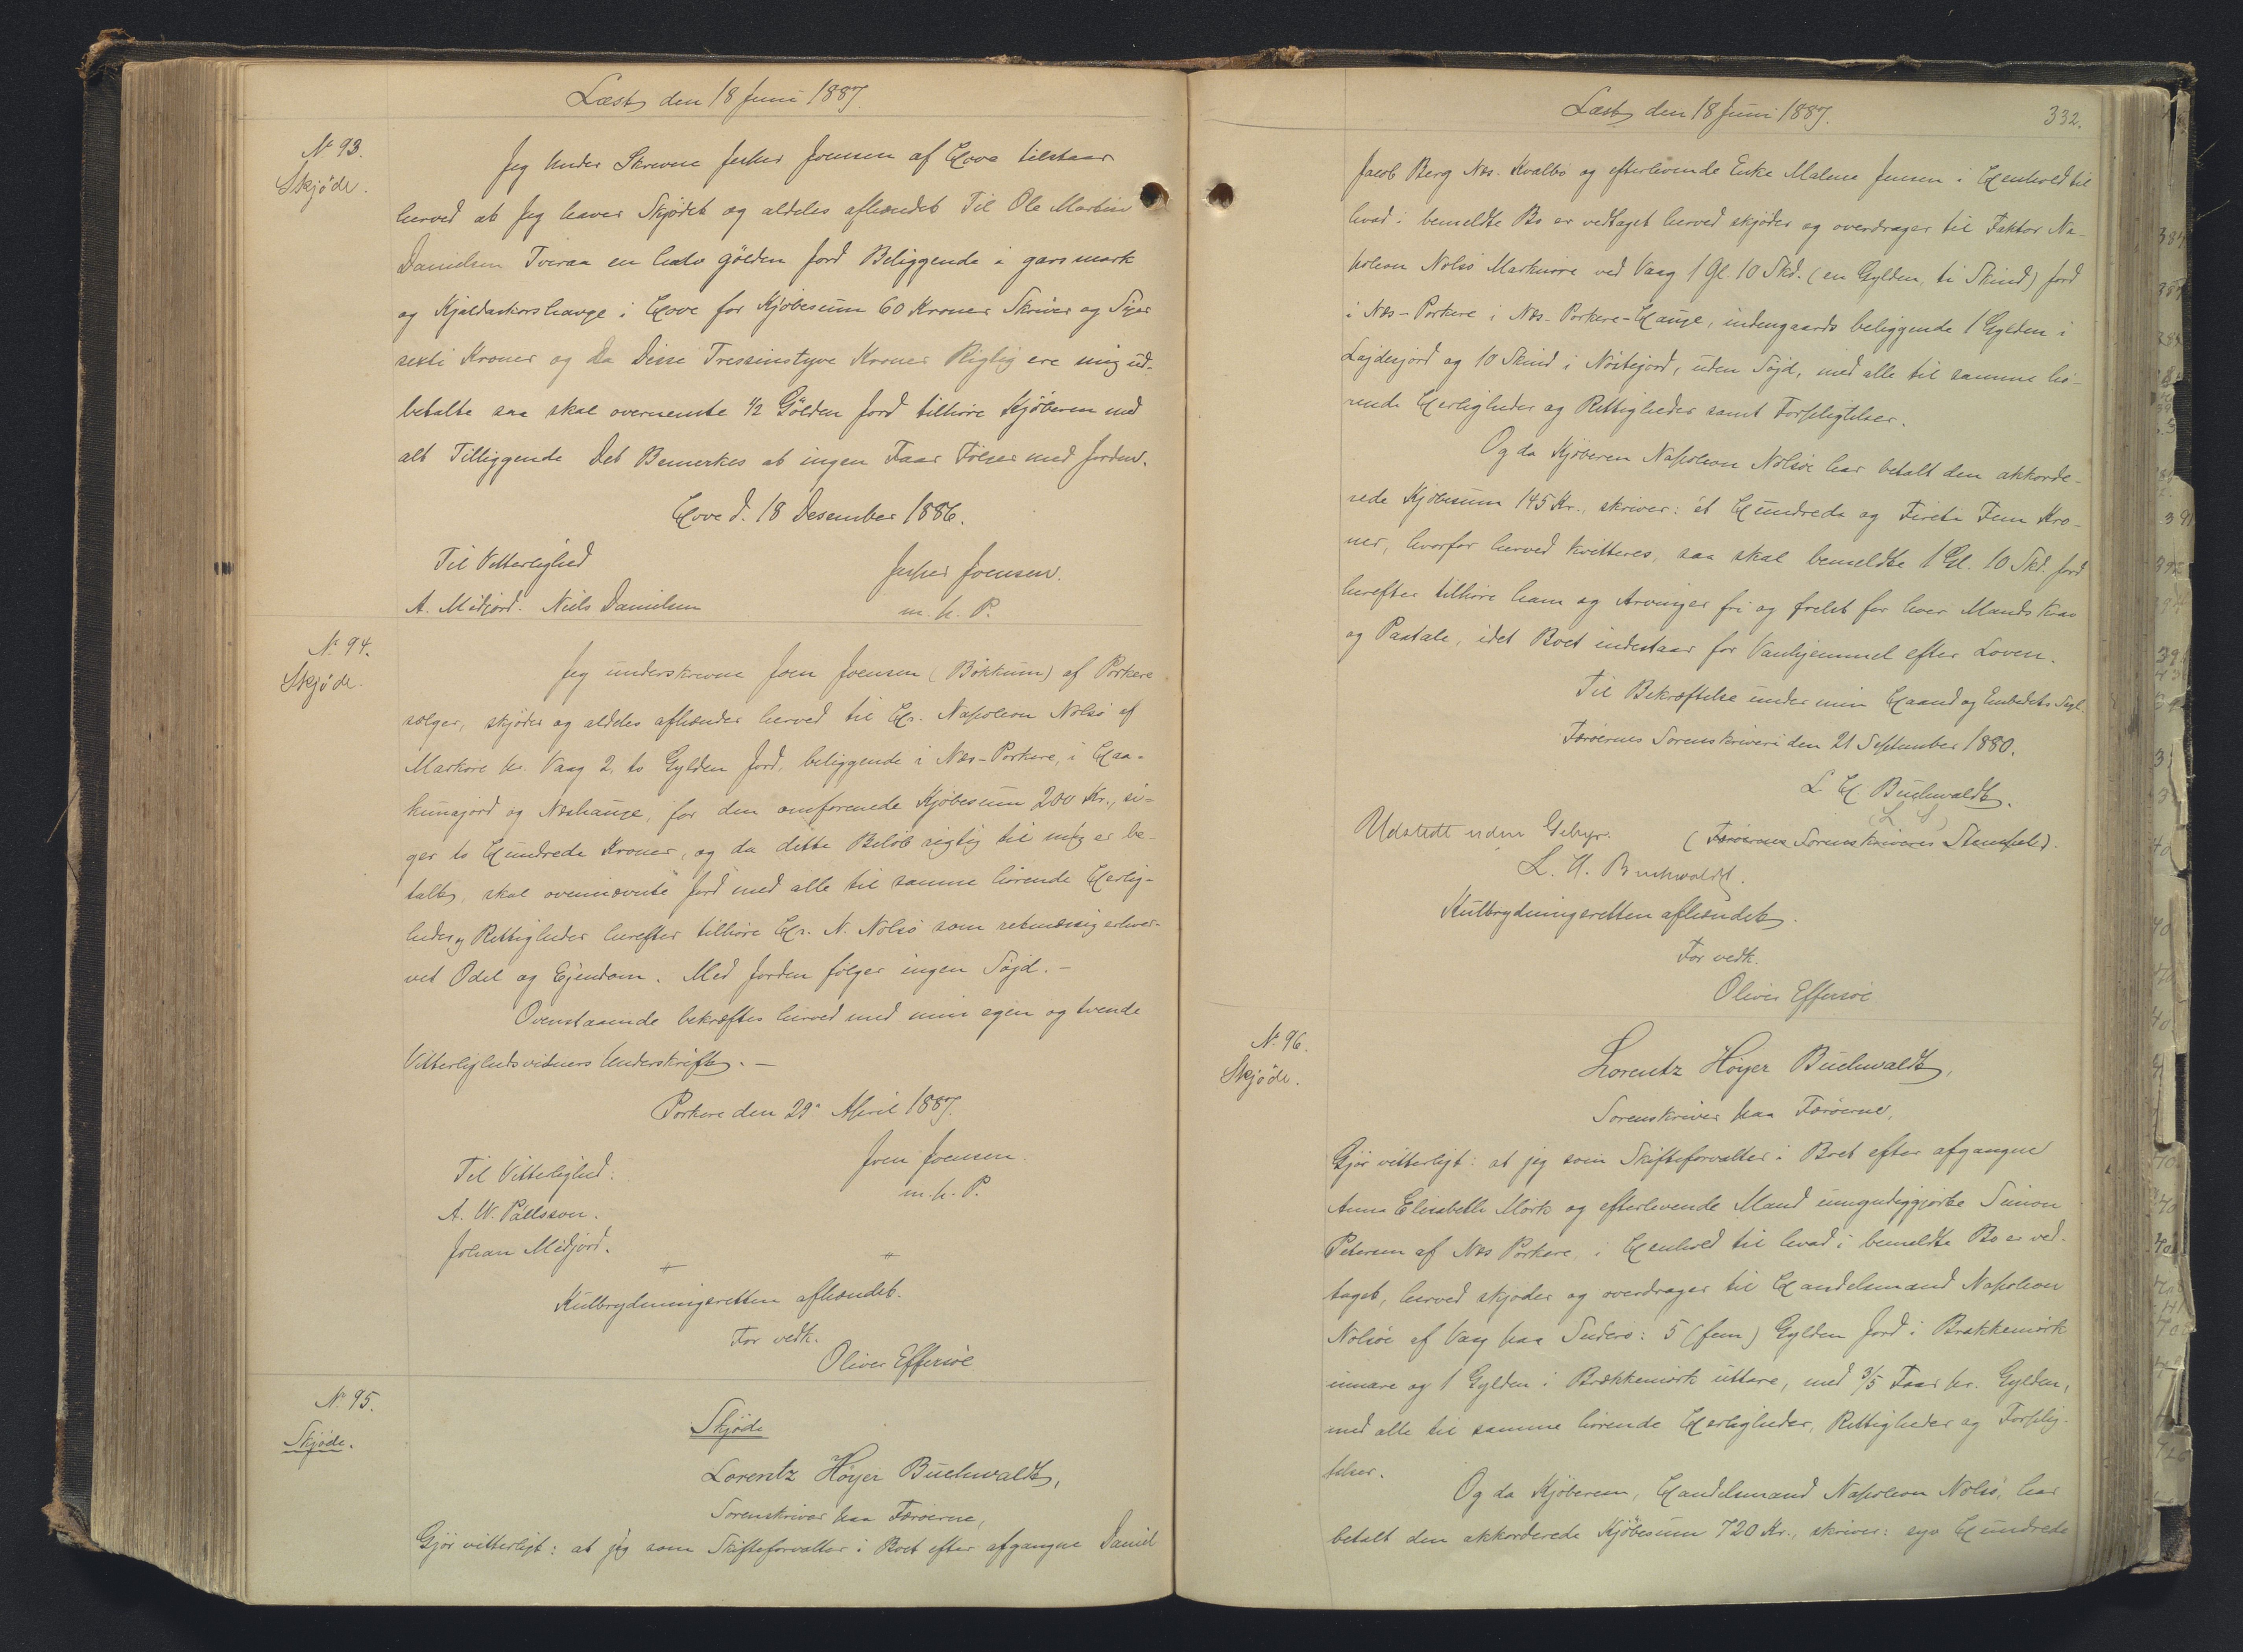 Læst den 18 Juni 1887
No 93.
Skjøde.
Jeg Under Skrevne Jesper Joensen af Hove tilstaar
herved at Jeg haver Skjødet og aldeles afhændet Til Ole Martin
Danielsen Tveraa en halv gölden Jord Beliggende i gars mark
og Kjaldankorshauge i Hove for Kjøbesum 60 Kroner Skriver og Siger
sexti Kroner og Da Disse Tressinstyve Kroner Rigtig ere mig ud-
betalte saa skal overnemte 1/2 Gölden Jord tilhøre Kjøberen med
alt Tilliggende Det Bemerkes at ingen Faar Følger med Jorden.
Hove d. 18 Desember 1886.
Til Vitterlighed
Jesper Joensen.
A. Midjord. Niels Danielsen
m. p. P.
No 94.
Skjøde.
Jeg underskrevne Joen Joensen (Bökkum) af Porkere
sælger, skjøder og aldeles afhænder herved til Hr. Napoleon Nolsø af
Markøre pr. Vaag 2, to Gylden Jord, beliggende i Næs-Porkere, i Haa-
kunsjord og Næshauge, for den omforenede Kjøbesum 200 Kr., si-
ger to Hundrede Kroner, og da dette Beløb rigtig til mig er be-
talt, skal ovennævnte Jord med alle til samme hørende Herlig-
heder og Rettigheder herefter tilhøre Hr. N. Nolsø som retmæssig erhver-
vet Odel og Ejendom. Med Jorden følger ingen Søjd. -
Ovenstaaende bekræftes herved med min egen og tvende
Vitterlighedsvidners Underskrift. -
Porkere den 29 April 1887.
Til Vitterlighed:
Joen Joensen.
m. p. P.
A. W. Pállsson.
Johan Midjord.
Kulbrydningsretten afhændet.
For vedk.
Oliver Effersøe
No 95.
Skjøde.
Skjøde
Lorentz Høyer Buchwaldt,
Sorenskriver paa Færøerne,
Gjør vitterligt: at jeg som Skifteforvalter i Boet efter afgangne Daniel
Læst den 18 Juni 1887.
332.
Jacob Berg Næs. Kvalbø og efterlevende Enke Malene Jensen i Henhold til
hvad i bemeldte Bo er vedtaget herved skjøder og overdrager til Faktor Na-
poleon Nolsø Marknøre ved Vaag 1 Gl. 10 Skd. (en Gylden, ti Skind) Jord
i Næs-Porkere i Næs-Porkere-Hauge, indengaards beliggende 1 Gylden i
Lajdesjord og 10 Skind i Nöstejord, uden Søjd, med alle til samme hø-
rende Herligheder og Rettigheder samt Forpligtelser.
Og da Kjøberen Napoleon Nolsøe har betalt den akkorde-
rede Kjøbesum 145 Kr., skriver: ét Hundrede og Fireti Fem Kro-
ner, hvorfor herved kvitteres, saa skal bemeldte 1 Gl. 10 Skd. Jord
herefter tilhøre ham og Arvinger fri og frelst for hver Mands Krav
og Paatale, idet Boet indestaar for Vanhjemmel efter Loven.
Til Bekræftelse under min Haand og Embedets Segl.
Færøernes Sorenskriveri den 21 September 1880.
L H Buchwaldt.
(L. S)
Udstedt uden Gebyr.
(Færøernes Sorenskriveris Stempel).
L. H. Buchwaldt.
Kulbrydningsretten afhændet.
For vedk.
Oliver Effersøe
No 96.
Skjøde.
Lorentz Høyer Buchwaldt,
Sorenskriver paa Færøerne,
Gjør vitterligt: at jeg som Skifteforvalter i Boet efter afgangne
Anna Elisabeth Mörk og efterlevende Mand umyndiggjorte Simon
Petersen af Næs Porkere, i Henhold til hvad i bemeldte Bo er ved-
taget, herved skjøder og overdrager til Handelsmand Napoleon
Nolsøe af Vaag paa Suderø: 5 (fem) Gylden Jord i Brækkemörk
innare og 1 Gylden i Brækkemörk uttare, med 3/5 Faar pr. Gylden,
med alle til samme hørende Herligheder, Rettigheder og Forplig-
telser.
Og da Kjøberen, Handelsmand Napoleon Nolsø, har
betalt den akkorderede Kjøbesum 720 Kr., skriver: syv Hundrede